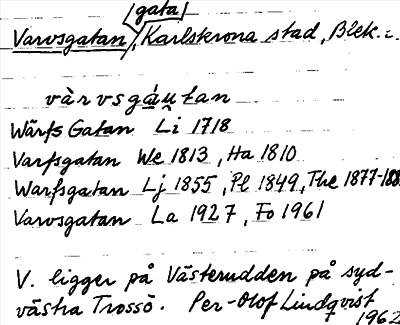 /gata/
Varvsgatan, Karlskrona stad, Blek.
vàrvsgáu̯tan
Wärfs Gatan Li 1718
Varfsgatan We 1813, Ha 1810
Warfsgatan Lj 1855, Pl 1849, The 1877-188
Varvsgatan La 1927, Fo 1961
V. ligger på Västerudden på syd-
västra Trossö. Per-Olof Lindqvist
1962